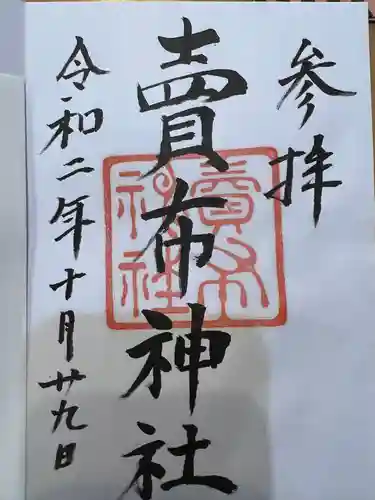 参拝
賣布神社
賣布
神社
令和二年十月廿九日